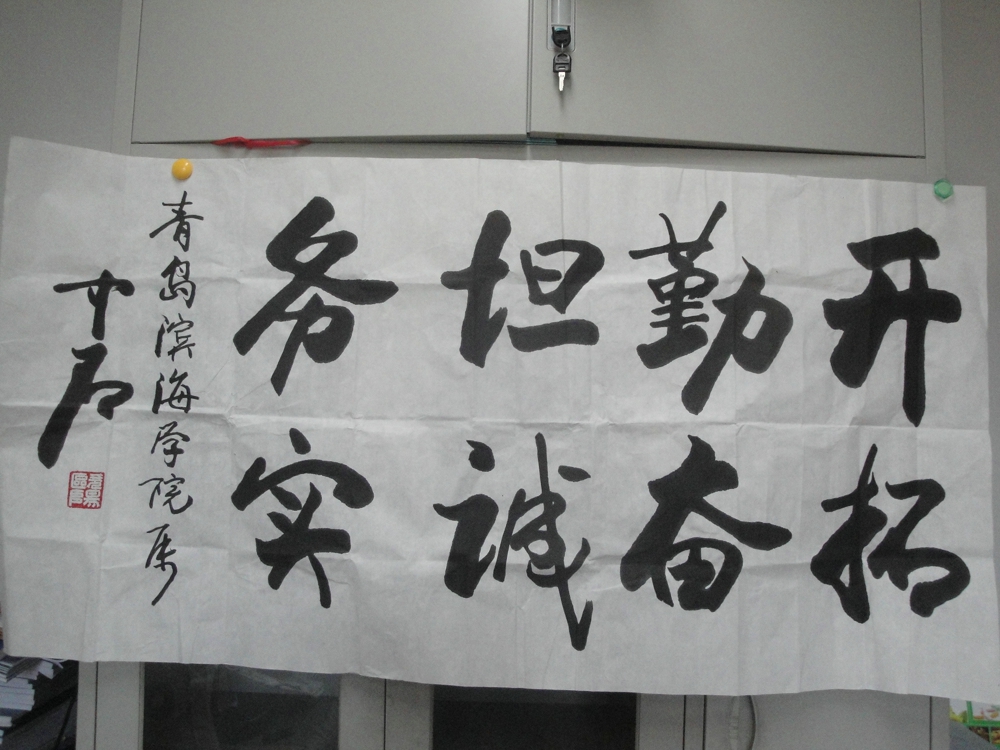 开拓
勤奋
坦诚
务实
青岛滨海学院属